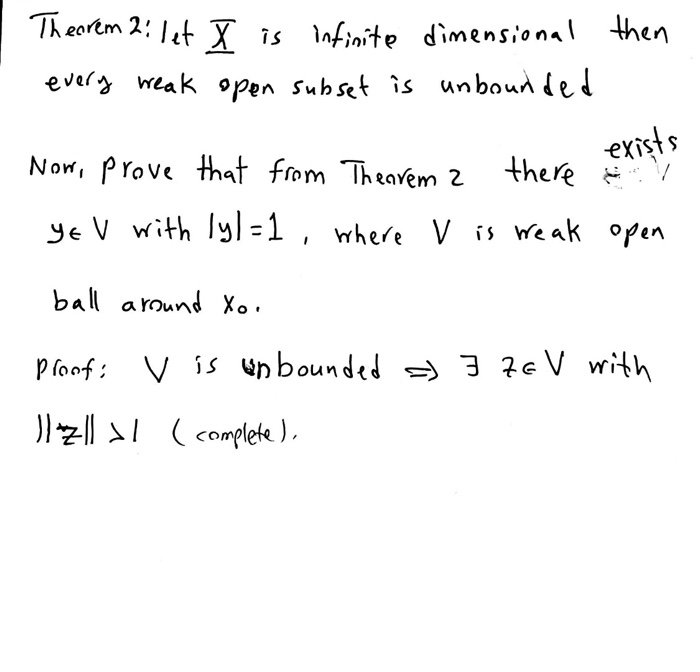 Theorem 2: let X is infinite dimensional then
every weak open subset is unbounded
Now, prove that from Theorem 2 there exists
y∈V with |y|=1, where V is weak open
ball around x₀.
proof: V is unbounded ⇒ ∃ z∈V with
||z||>1 (complete).